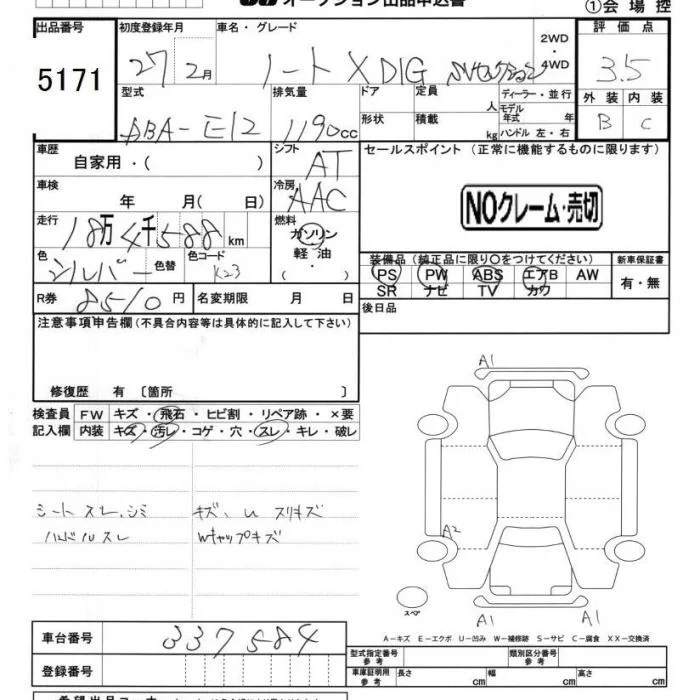 オークション出品申込書 ①会場控
出品番号 初度登録年月 車名・グレード 2WD・4WD 評価点
5171 27 2月 ノート X DIG 3.5
型式 排気量 ドア 定員 人 ディーラー・並行 外装 内装
ABA-E12 1190cc 形状 積載 kg モデル年式 年 ハンドル 左・右 B C
車歴 自家用・( ) シフト AT セールスポイント(正常に機能するものに限ります)
車検 年 月(日) 冷房 AAC
NOクレーム・売切
走行 18万4千588km 燃料 ガソリン 軽油 ( ・ )
色 シルバー 色替 色コード K23
装備品(純正品に限り○をつけてください) 新車保証書
PS PW ABS エアB AW 有・無
SR ナビ TV カワ
R券 8510円 名変期限 月 日 後日品
注意事項申告欄(不具合内容等は具体的に記入して下さい)
修復歴 有 〔箇所 〕
検査員 FW キズ・飛石・ヒビ割・リペア跡・×要
記入欄 内装 キズ・汚レ・コゲ・穴・スレ・キレ・破レ
シートスレ、シミ キズ、U スリキズ
ハンドルスレ Wキャップキズ
A1
A2
スペア
A1 A1
A-キズ E-エクボ U-凹み W-補修跡 S-サビ C-腐食 XX-交換済
車台番号 337584
型式指定番号 参考 類別区分番号 参考
登録番号 車庫証明用 参考 長さ cm 幅 cm 高さ cm